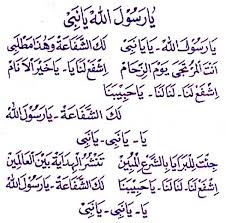 يَارَسُوْلَ اللهِ يَا نَبِىْ
يَارَسُوْلَ اللهِ - يَايَانَبِىْ لَكَ الشَّفَاعَةْ وَهٰذَا مَطْلَبِىْ
اَنْتَ الْمُرْتَجٰى يَوْمَ الزِّحَامِ اِشْفَعْ لَنَا - يَا خَيْرَ الْاَنَامِ
اِشْفَعْ لَنَا - لَنَا لَنَا - يَاحَبِيْبَنَا
لَكَ الشَّفَاعَةْ - يَارَسُوْلَ اللهِ
يَا - يَانَبِى - يَانَبِى
جِئْتَ لِلْبَرَايَا بِالشَّرْعِ الْمُبِيْنِ تَنْشُرُ الْهِدَايَةْ بَيْنَ الْعَالَمِيْنَ
اِشْفَعْ لَنَا - لَنَا لَنَا - يَاحَبِيْبَنَا لَكَ الشَّفَاعَةْ - يَارَسُوْلَ اللهِ
يَا - يَانَبِى - يَانَبِى